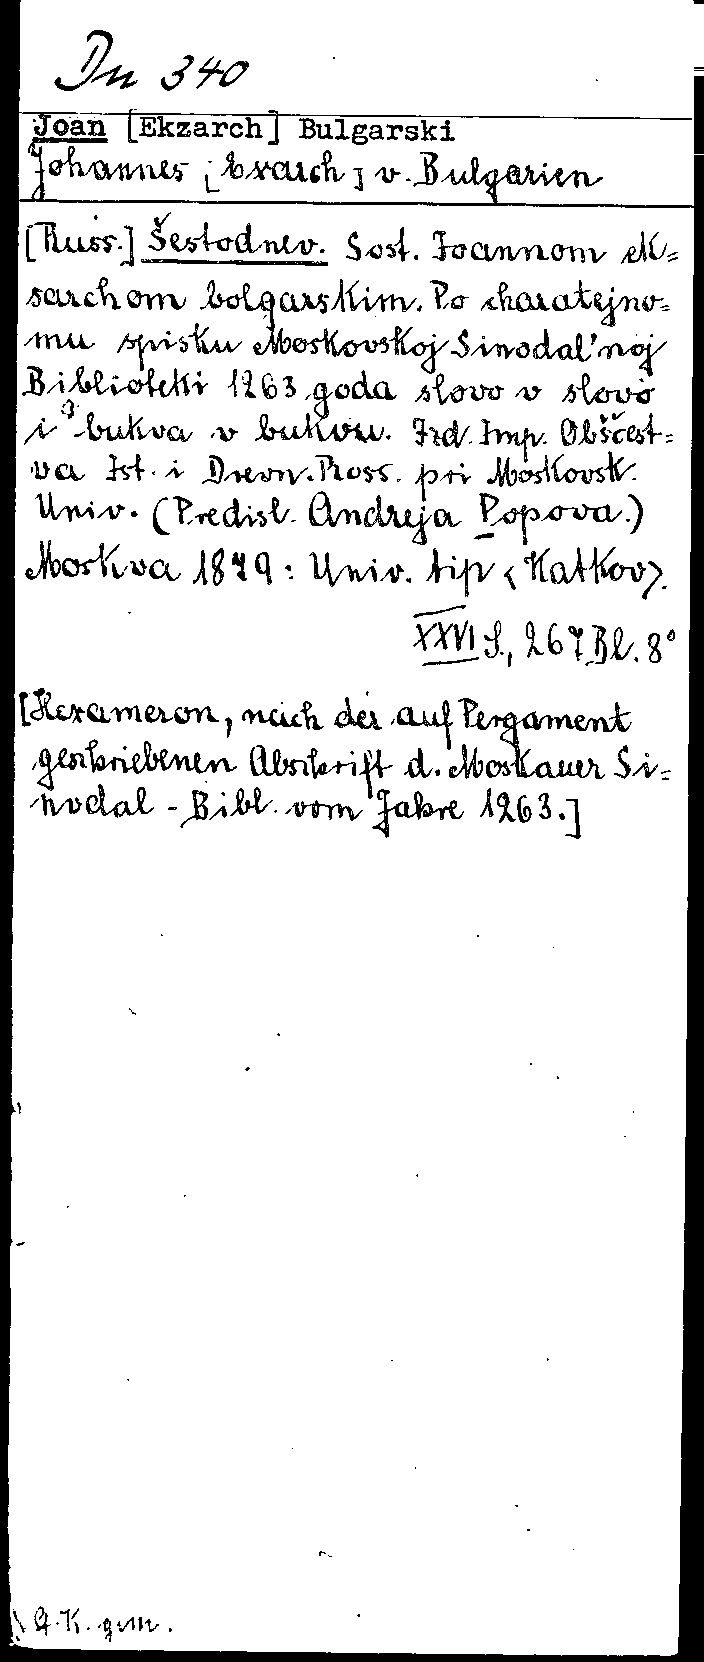 Dn 340
Joan [Ekzarch] Bulgarski
Johannes [Exarch] v. Bulgarien
[Russ.] Šestodnev. Sost. Joannom ek=
sarchom bolgarskim. Po charatejno=
mu spisku Moskovskoj Sinodal'noj
Biblioteki 1263 goda slovo v slovo
i bukva v bukvu. Izd. Imp. Obščest=
va Ist. i Drevn. Ross. pri Moskovsk.
Univ. (Predisl. Andreja Popova.)
Moskva 1879: Univ. tip <Katkov>.
XXVI S., 267 Bl. 8°
[Hexameron, nach der auf Pergament
geschriebenen Abschrift d. Moskauer Si=
nodal-Bibl. vom Jahre 1263.]
G.K. gem.